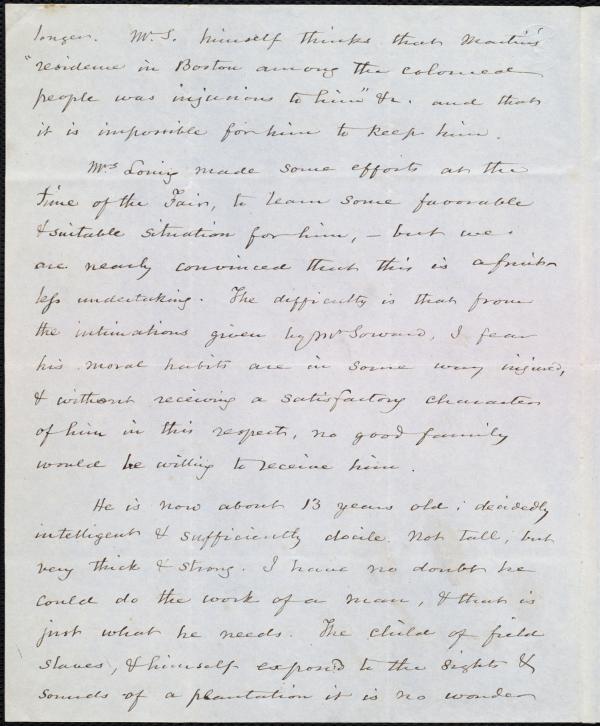 longer. Mr. S. himself thinks that Martin's
"residence in Boston among the colored
people was injurious to him" &c. and that
it is impossible for him to keep him.
Mrs Loring made some efforts at the
time of the Fair, to learn some favorable
& suitable situation for him, – but we
are nearly convinced that this is a fruit-
less undertaking. The difficulty is that from
the intimations given by Mr Soward, I fear
his moral habits are in some way injured,
& without receiving a satisfactory character
of him in this respect, no good family
would be willing to receive him.
He is now about 13 years old; decidedly
intelligent & sufficiently docile. Not tall, but
very thick & strong. I have no doubt he
could do the work of a man, & that is
just what he needs. The child of field
slaves, & himself exposed to the sights &
sounds of a plantation it is no wonder